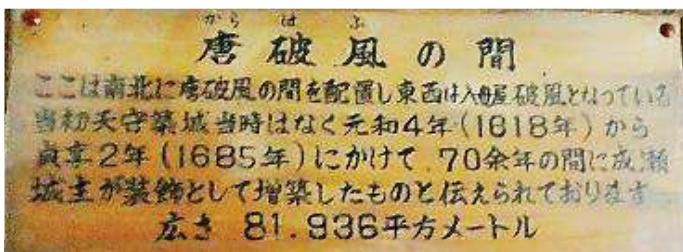 からはふ
唐破風の間
ここは南北に唐破風の間を配置し東西は入母屋破風となっている
当初天守築城当時はなく元和4年(1618年)から
貞享2年(1685年)にかけて 70余年の間に成瀬
城主が装飾として増築したものと伝えられております
広さ 81.936平方メートル